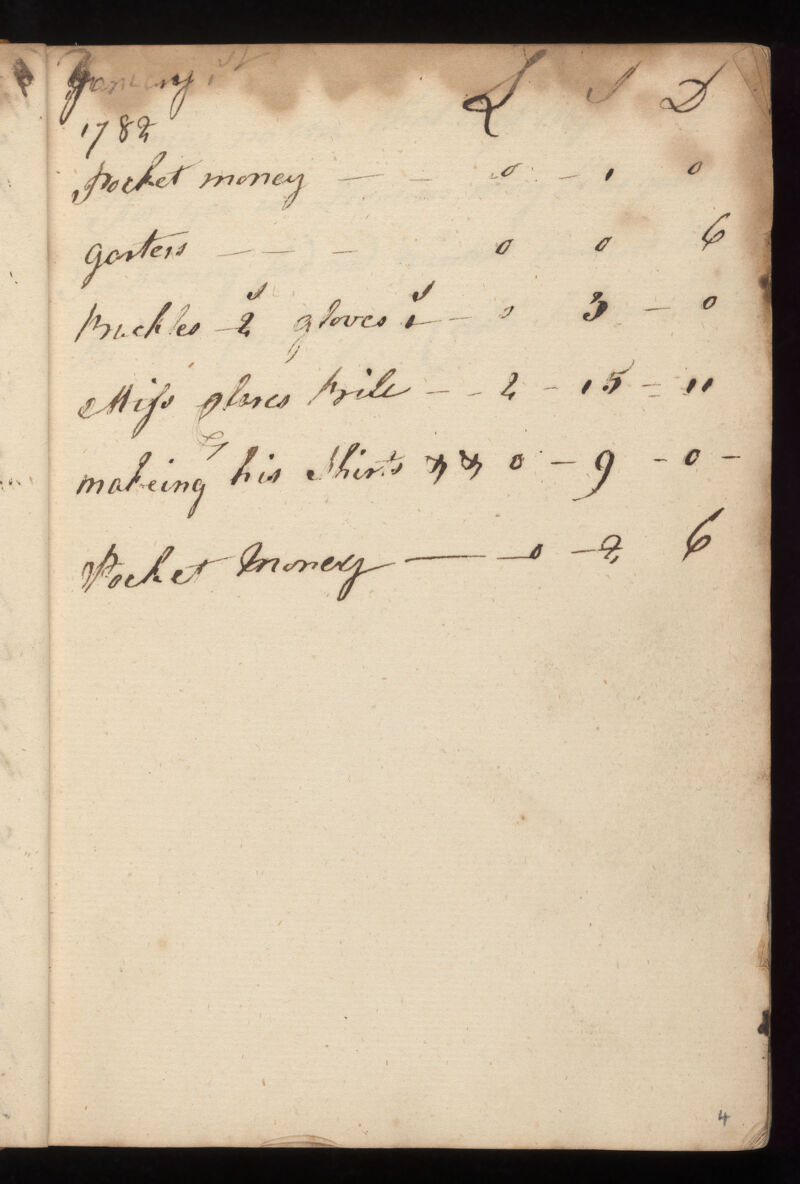 January 1st L S D
1782
Pocket money — — 0 — 1 0
garters — — — 0 0 6
Buckles 2s gloves 1s — 0 3 — 0
Miss Bill — — 2 — 15 — 11
makeing his Shirts 0 — 9 — 0 —
Pocket Money — 0 — 2 6
4